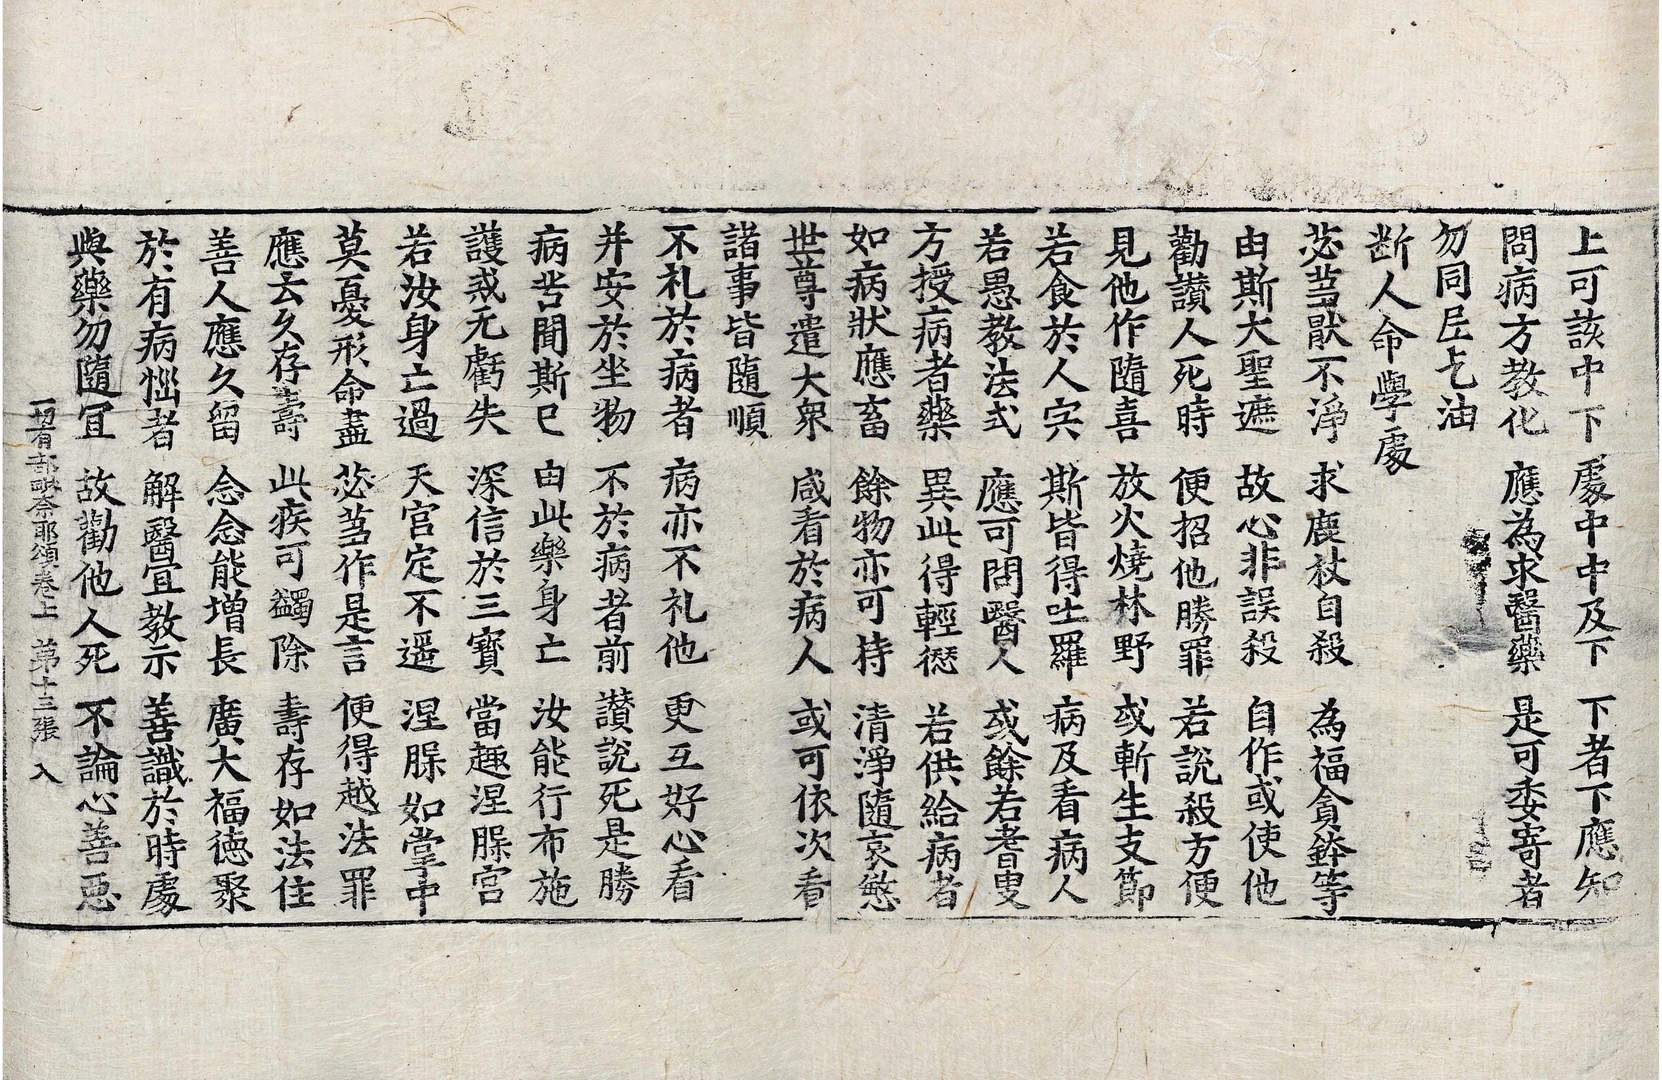 上可該中下　處中中及下　下者下應知
問病方教化　應為求醫藥　是可委寄者
勿同居乞油
断人命學處
苾芻猒不淨　求鹿杖自殺　為福貪鉢等
由斯大聖遮　故心非誤殺　自作或使他
勸讃人死時　便招他勝罪　若說殺方便
見他作隨喜　放火燒林野　或斬生支節
若食於人宍　斯皆得吐羅　病及看病人
若愚教法式　應可問醫人　或餘若耆叟
方授病者藥　異此得輕愆　若供給病者
如病狀應畜　餘物亦可持　清淨隨哀愍
世尊遣大衆　咸看於病人　或可依次看
諸事皆隨順
不礼於病者　病亦不礼他　更互好心看
并安於坐物　不於病者前　讃說死是勝
病苦聞斯已　由此樂身亡　汝能行布施
護戒无虧失　深信於三寶　當趣涅槃宮
若汝身亡過　天宮定不遥　涅槃如掌中
莫憂形命盡　苾芻作是言　便得越法罪
應云久存壽　此疾可蠲除　壽存如法住
善人應久留　念念能增長　廣大福德聚
於有病惱者　解醫宜教示　善識於時處
與藥勿隨宜　故勸他人死　不論心善惡
一切有部毗奈耶頌卷上　第十三張　入